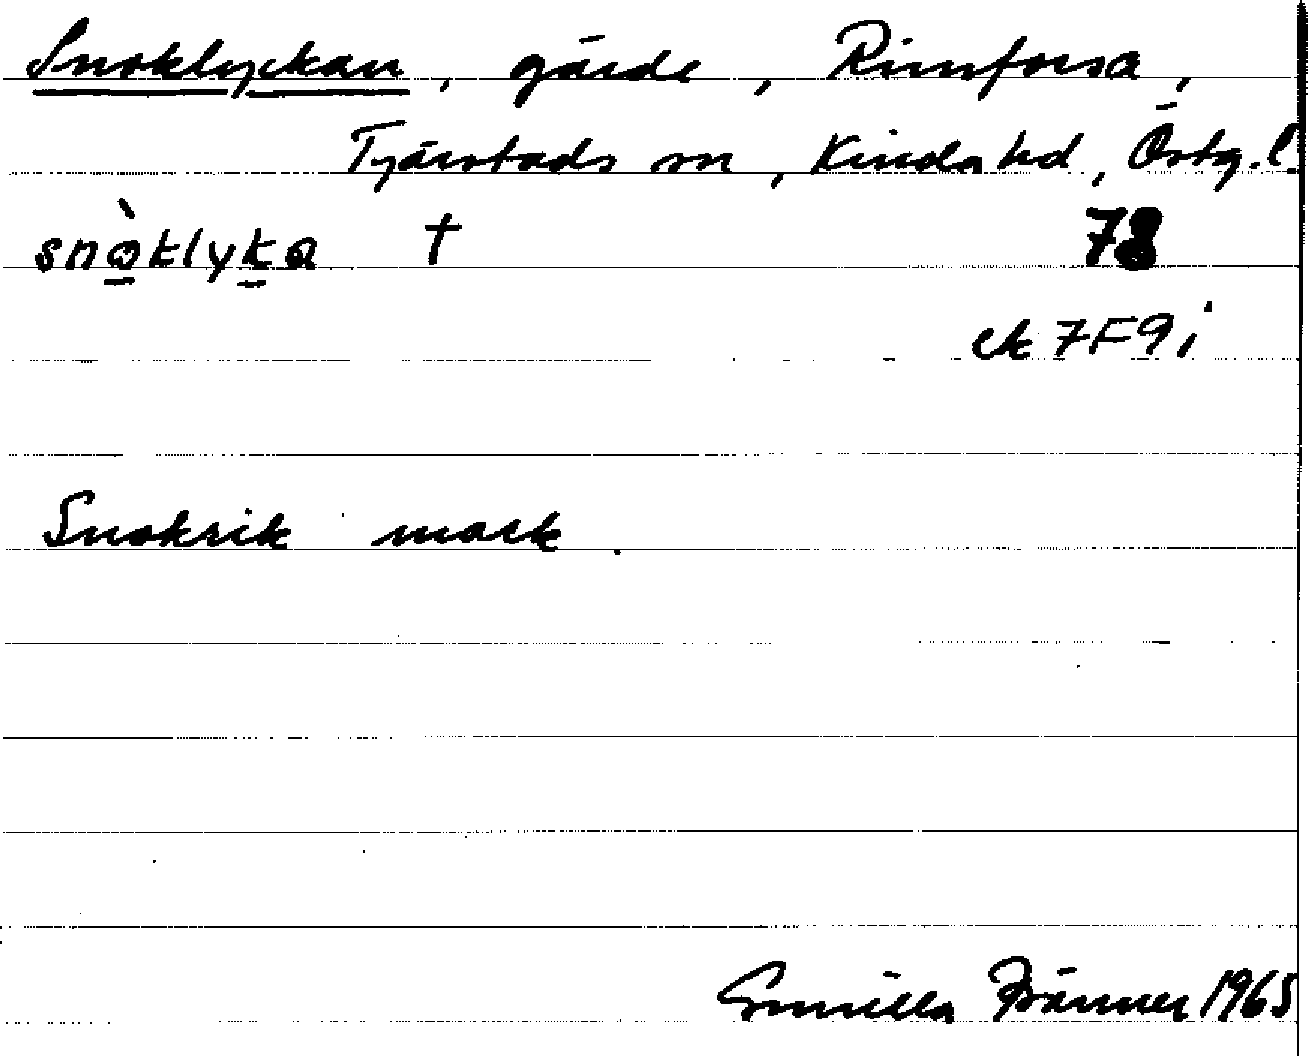 Snoklyckan, gärde, Rimforsa,
Tjärstads sn, Kinda hd, Östg. l.
snò̱klyḵa † 78
ek 7F9i
Snokrik mark.
Gunilla 1965